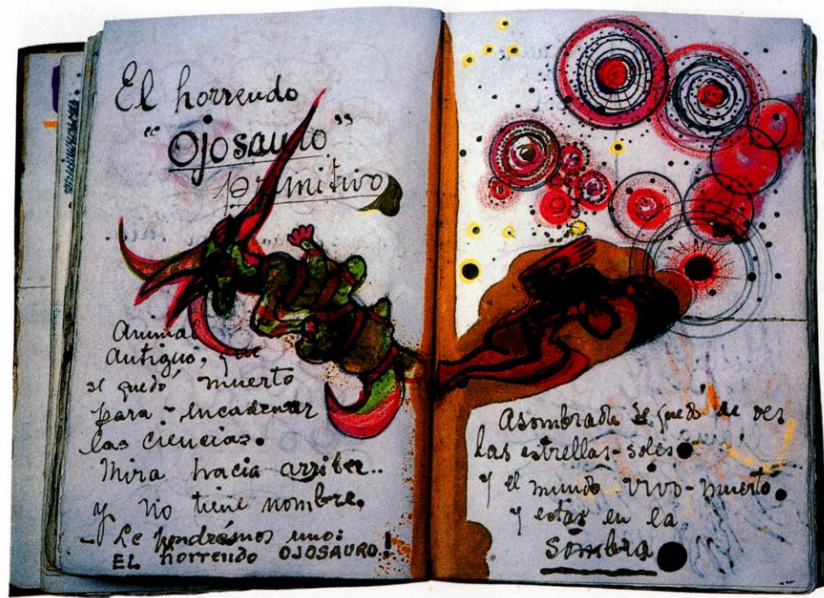 El horrendo
"Ojosauro"
primitivo
Animal
antiguo, que
se quedó muerto
para - encadenar
las ciencias.
Mira hacia arriba..
y no tiene nombre.
- Le pondrémos uno:
EL horrendo OJOSAURO!
Asombrada se quedó de ver
las estrellas-soles
y el mundo vivo-muerto
y estar en la
sombra